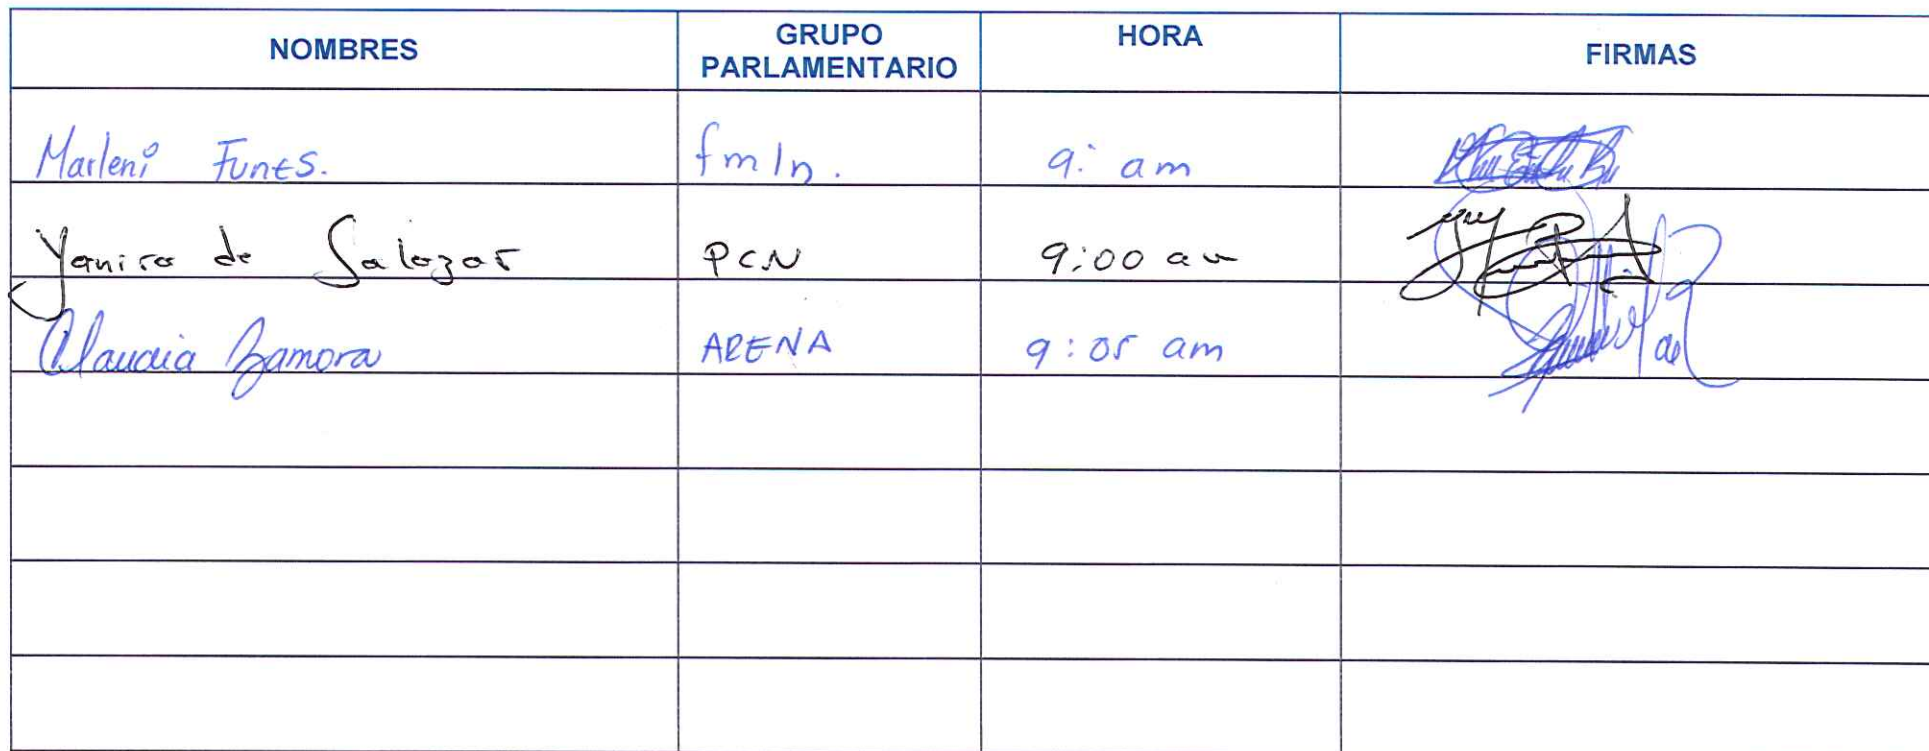 NOMBRES GRUPO PARLAMENTARIO HORA FIRMAS
Marleni Funes. fmln. 9: am
Yanira de Salazar PCN 9:00 am
Claudia Zamora ARENA 9:05 am